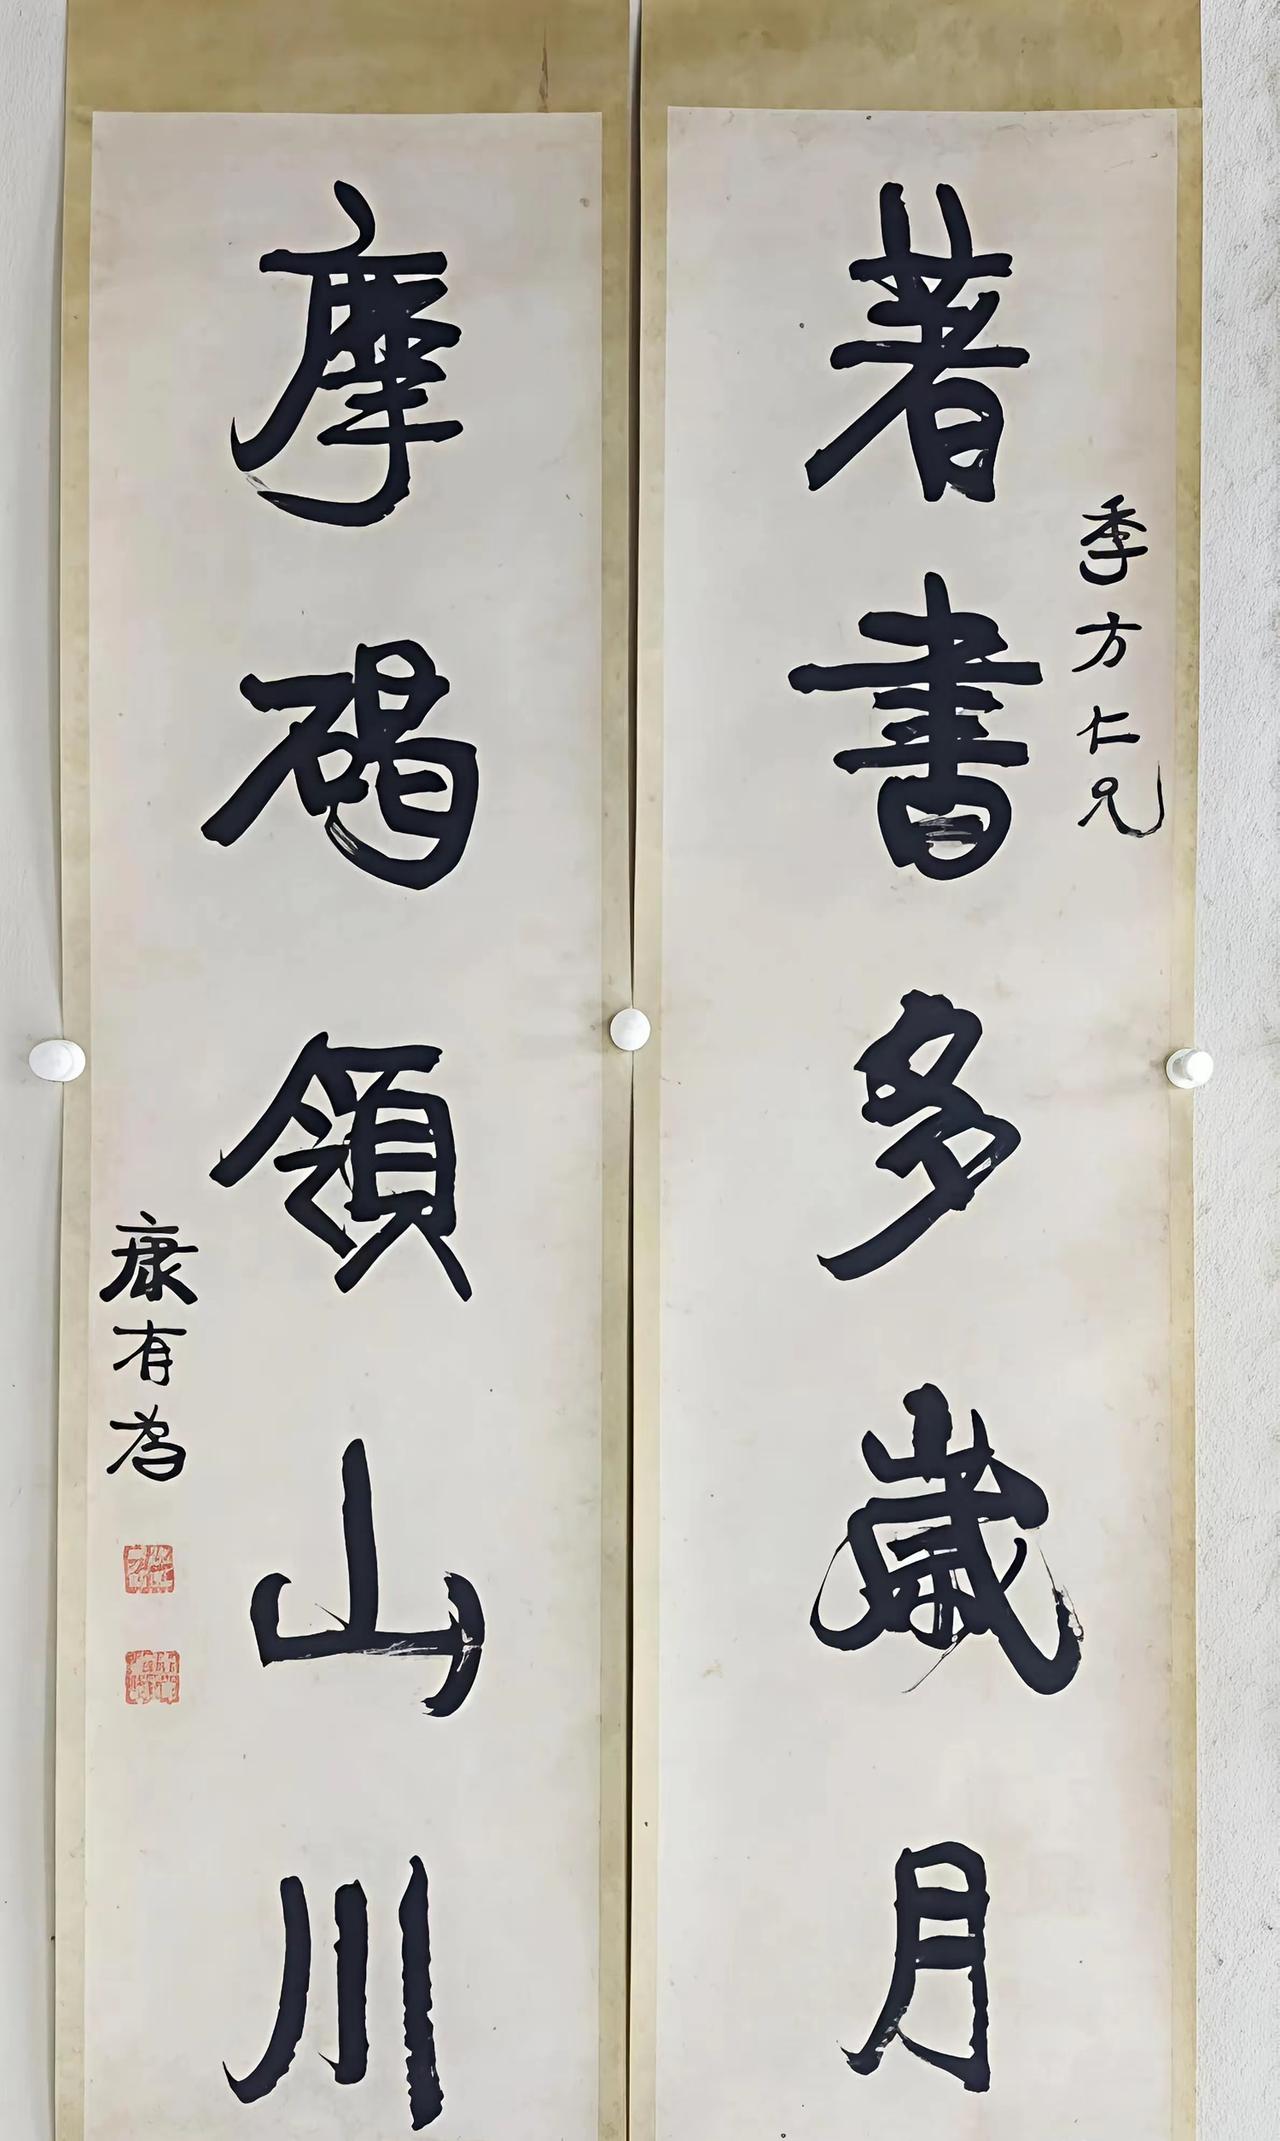 季方仁兄
著書多歲月
摩碣領山川
康有為